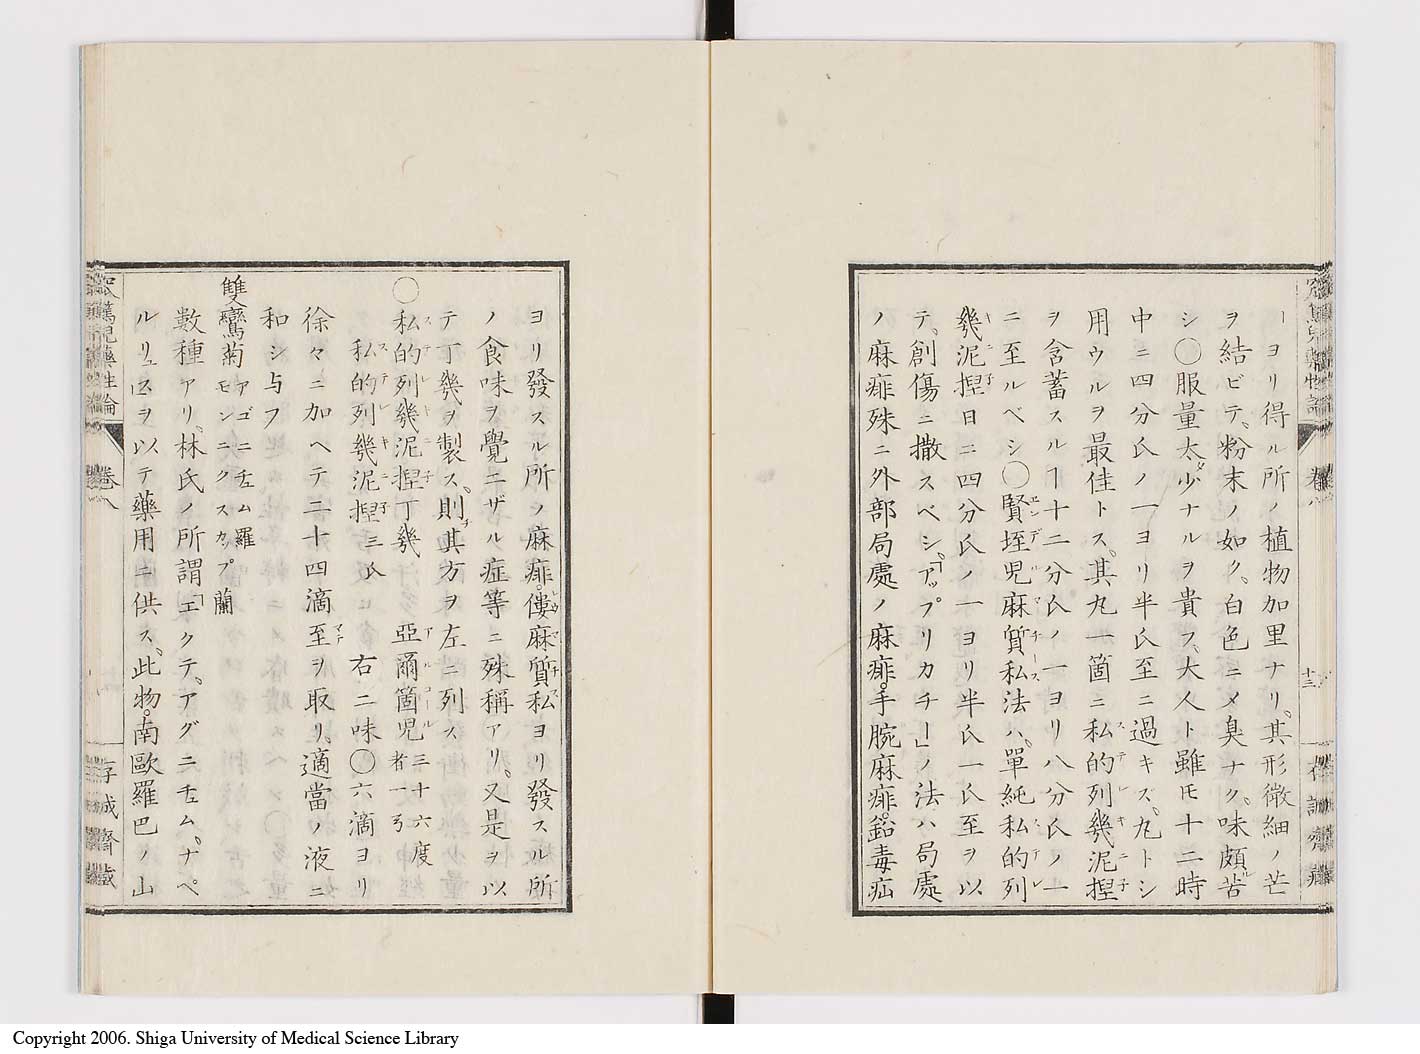 ーヨリ得ル所ノ植物加里ナリ。其形微細ノ芒
ヲ結ビテ、粉末ノ如ク、白色ニメ臭ナク。味頗ル苦
シ〇服量太タ少ナルヲ貴フ、大人ト雖モ十二時
中ニ四分氏ノ一ヨリ半氏至ニ過キズ、丸トシ
用ウルヲ最佳トス。其丸一箇ニ私的列幾泥捏
ヲ含蓄スルヿ十二分氏ノ一ヨリ八分氏ノ一
ニ至ルベシ〇賢垤児麻質私法ハ、單純私的列
幾泥捏日ニ四分氏ノ一ヨリ半氏一氏至ヲ以
テ、創傷ニ撒スベシ、「アップリカチー」ノ法ハ局處
ノ麻痱殊ニ外部局處ノ麻痱。手腕麻痱。鉛毒疝
ヨリ發スル所ノ麻痱。僂麻質私ヨリ發スル所
ノ食味ヲ覺ニザル症等ニ殊稱アリ。又是ヲ以
テ丁幾ヲ製ス。則チ其方ヲ左ニ列ス
〇私的列幾泥捏丁幾 亞爾箇児三十六度者一弓
私的列幾泥捏三氏 右二味〇六滴ヨリ
徐々ニ加ヘテ二十四滴至ヲ取リ、適當ノ液ニ
和シ与フ
雙鸞菊 アコニチュム羅 モンニクスカップ蘭
數種アリ、林氏ノ所謂「エクテ、アグニチュム、ナペ
ルリュス」ヲ以テ藥用ニ供ス、此物。南歐羅巴ノ山
卷八
十三
卷八